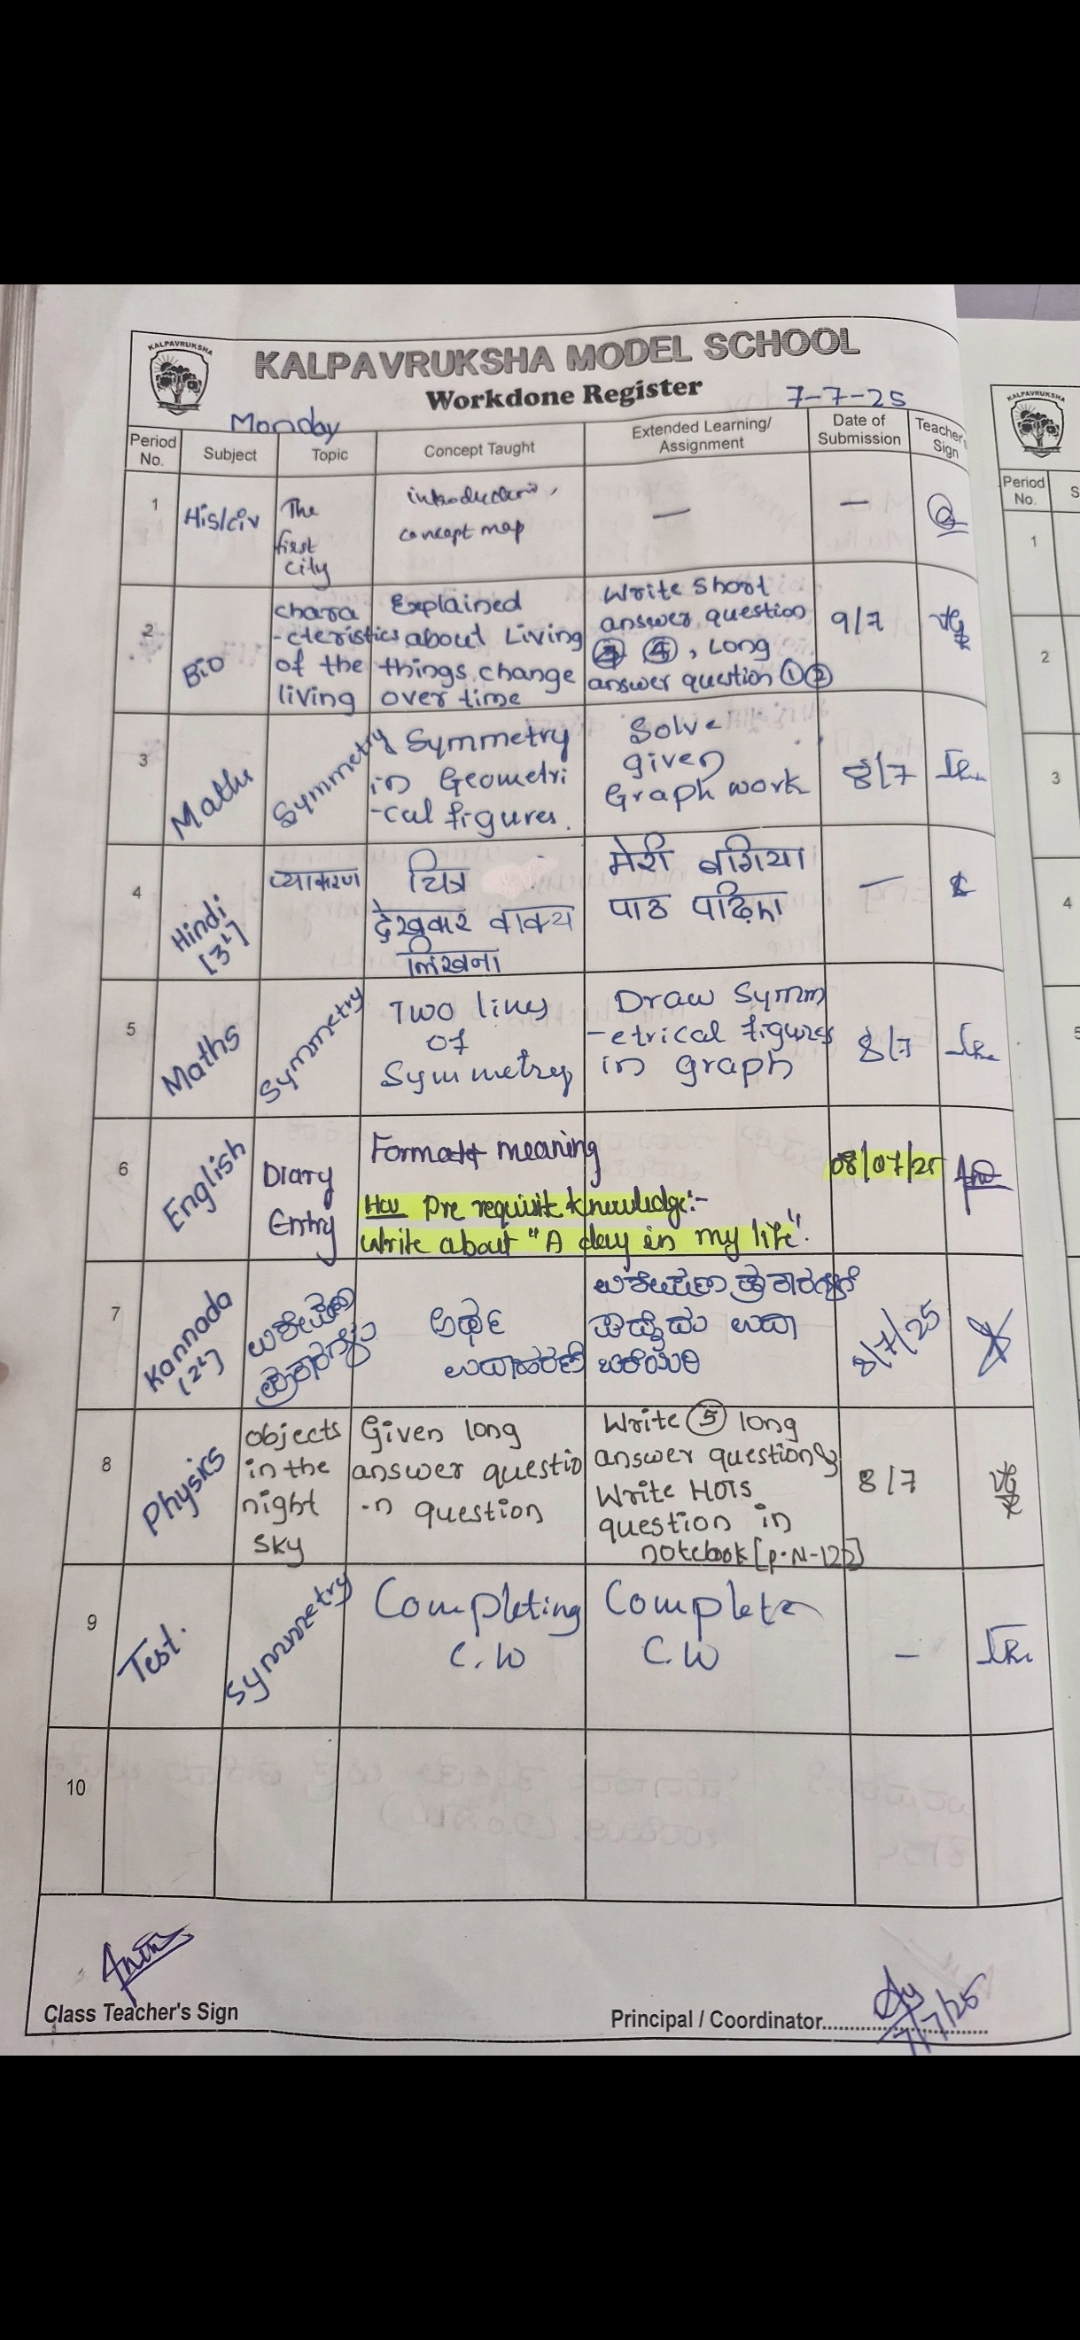 KALPAVRUKSHA
KALPAVRUKSHA MODEL SCHOOL
Workdone Register
7-7-25
Monday
Period No.
Subject
Topic
Concept Taught
Extended Learning/ Assignment
Date of Submission
Teacher's Sign
1
His/civ
The first city
introduction, concept map
—
—
2
Bio
chara-cteristics of the living
Explained about Living things change over time
Write short answer question ④, Long answer question ① ②
9/7
3
Maths
Symmetry
Symmetry in Geometri-cal figures.
Solve given Graph work
8/7
4
Hindi [3L]
व्याकरण
चित्र देखकर वाक्य लिखना
मेरी बगिया पाठ पढ़िए।
—
5
Maths
Symmetry
Two lines of Symmetry
Draw Symm-etrical figures in graph
8/7
6
English
Diary Entry
Format meaning
HW Pre requisit knowledge:-
Write about "A day in my life".
08/07/25
7
Kannada (2L)
ಪ್ರಕಾರಗಳು
ಅರ್ಥ ಉದಾಹರಣೆ
ಬರೆಯಿರಿ
8/7/25
8
Physics
objects in the night sky
Given long answer questio-n question
Write ⑤ long answer question & Write HOTS question in notebook [P.N-122]
8/7
9
Test.
Symmetry
Completing C.W
Complete C.W
—
10
Class Teacher's Sign
Principal / Coordinator
7/7/25
KALPAVRUKSHA
Period No.
S
1
2
3
4
5